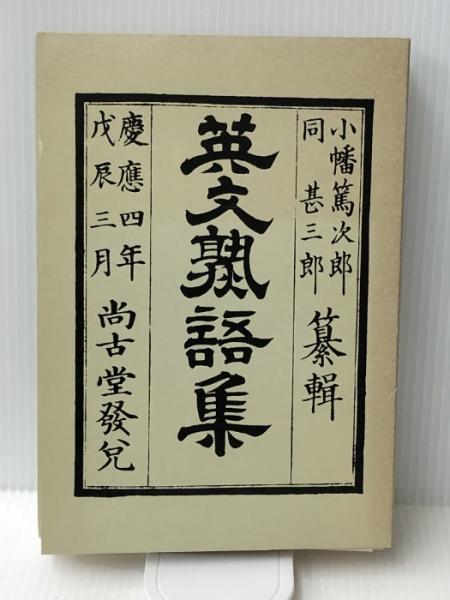 小幡篤次郎
同甚三郎
纂輯
英文熟語集
慶應四年
戊辰三月
尚古堂發兌